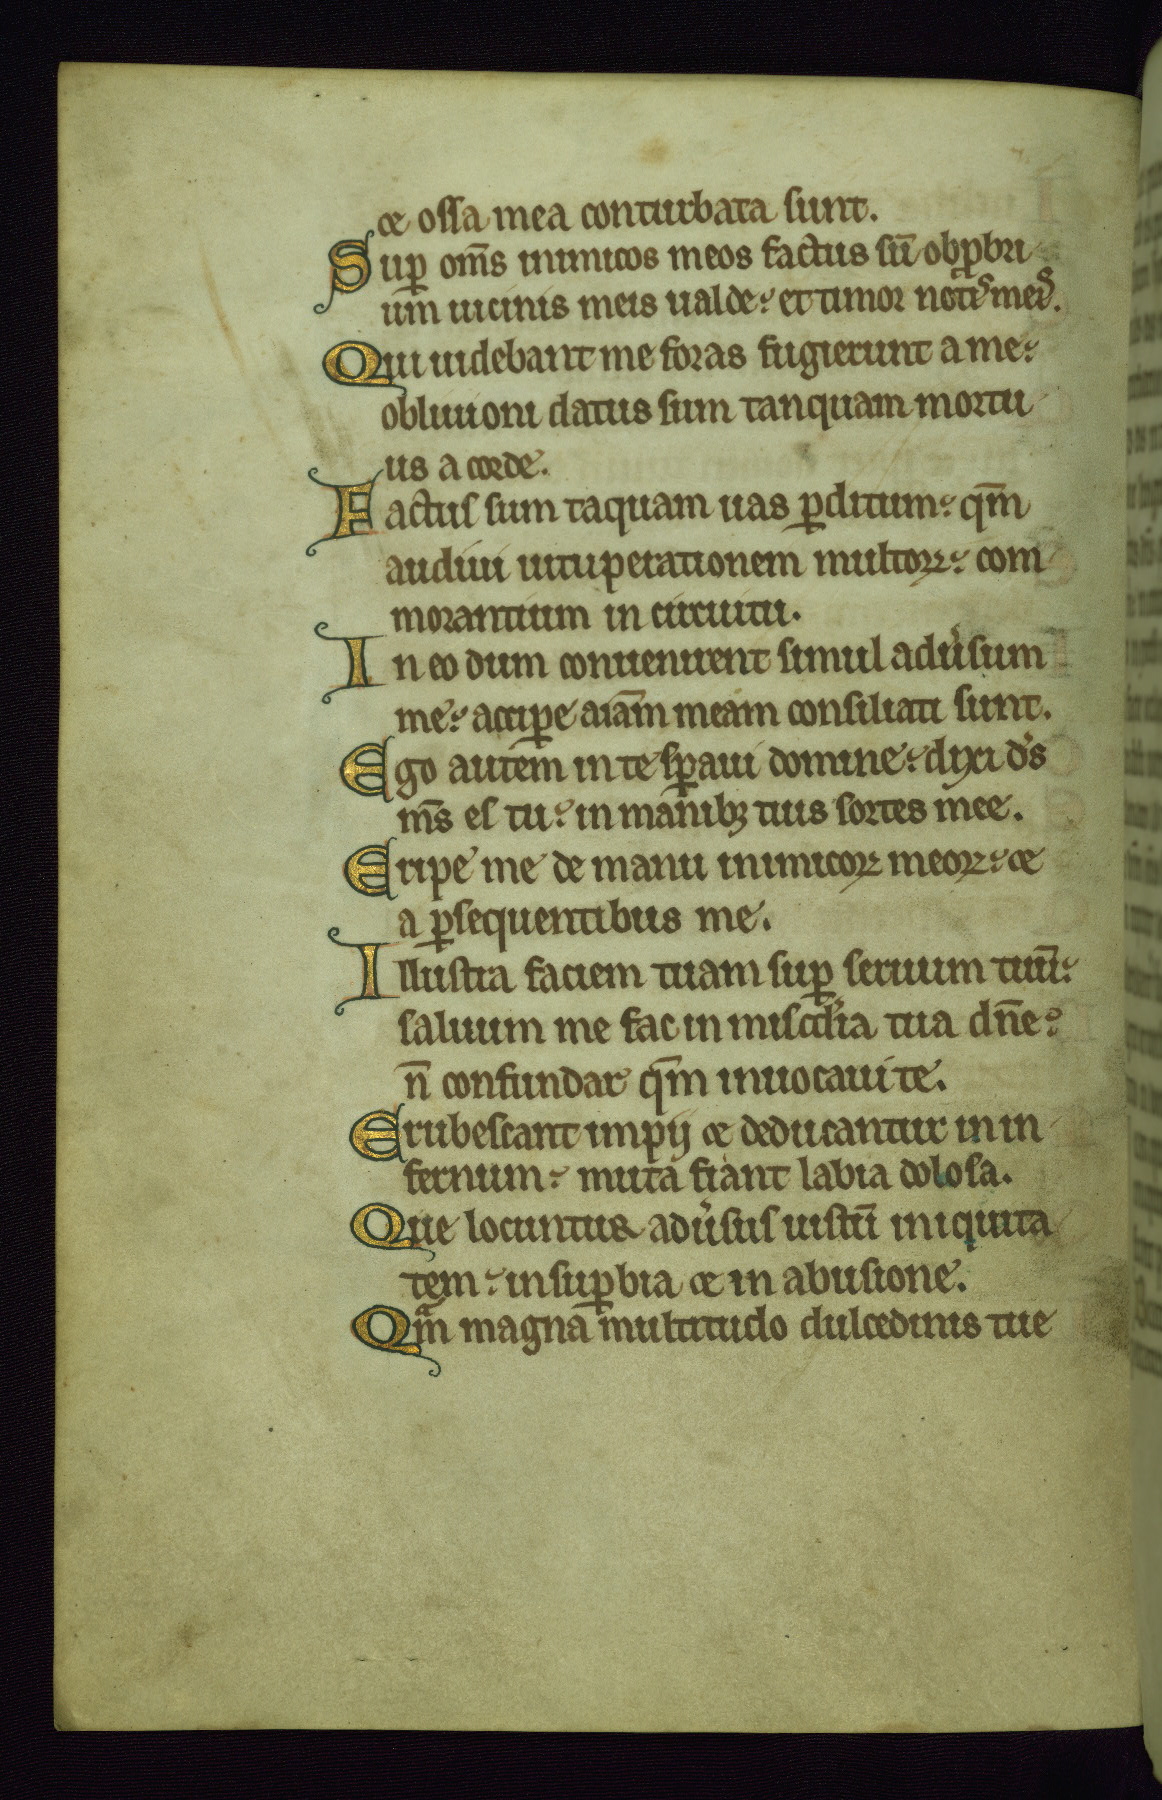 et ossa mea conturbata sunt.
Sup̱ om̄s inimicos meos factus sū obp̱bri
um uicinis meis ualde: et timor notis meis.
Qui uidebant me foras fugierunt a me:
obliuioni datus sum tanquam mortu
us a corde.
Factus sum taquam uas p̱ditum: qm̄
audiui uituperationem multoꝝ: com
morantium in circuitu.
In eo dum conuenirent simul adu̾sum
me: accip̱e aiam̄ meam consiliati sunt.
Ego autem in te sp̱aui domine: dixi ds̄
ms̄ es tu: in manibꝫ tuis sortes mee.
Eripe me de manu inimicoꝝ meoꝝ: et
a p̱sequentibus me.
Illustra faciem tuam sup̱ seruum tuū:
saluum me fac in misc̾dia tua dn̄e:
n̄ confundar qm̄ inuocaui te.
Erubescant impij et deducantur in in
fernum: muta fiant labia dolosa.
Que locuntur adu̾sus iustū iniquita
tem: in sup̱bia et in abusione.
Qm̄ magna multitudo dulcedinis tue